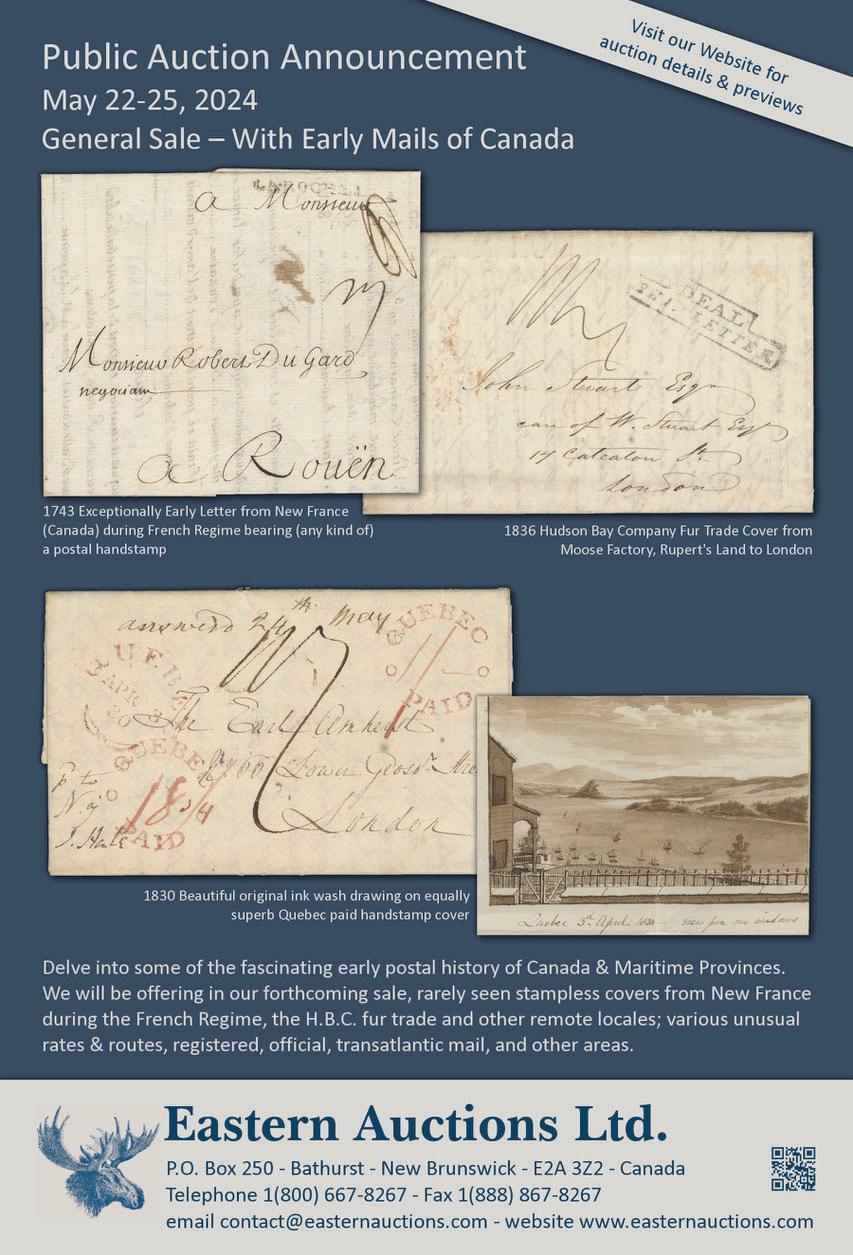 Visit our Website for
auction details & previews
Public Auction Announcement
May 22-25, 2024
General Sale – With Early Mails of Canada
a Monsieur
Monsieur Robert Du Gard
negociant
a Rouën
DEAL
SHIP LETTER
John Stuart Esqr
care of W. Stuart Esqr
17 Cateaton St.
London
1743 Exceptionally Early Letter from New France
(Canada) during French Regime bearing (any kind of)
a postal handstamp
1836 Hudson Bay Company Fur Trade Cover from
Moose Factory, Rupert's Land to London
answered 24th May
QUEBEC
PAID
APR
The Earl Amherst
66 Lower Grosvr
London
QUEBEC
PAID
Quebec 5th April 1830 - view from our windows
1830 Beautiful original ink wash drawing on equally
superb Quebec paid handstamp cover
Delve into some of the fascinating early postal history of Canada & Maritime Provinces.
We will be offering in our forthcoming sale, rarely seen stampless covers from New France
during the French Regime, the H.B.C. fur trade and other remote locales; various unusual
rates & routes, registered, official, transatlantic mail, and other areas.
Eastern Auctions Ltd.
P.O. Box 250 - Bathurst - New Brunswick - E2A 3Z2 - Canada
Telephone 1(800) 667-8267 - Fax 1(888) 867-8267
email contact@easternauctions.com - website www.easternauctions.com